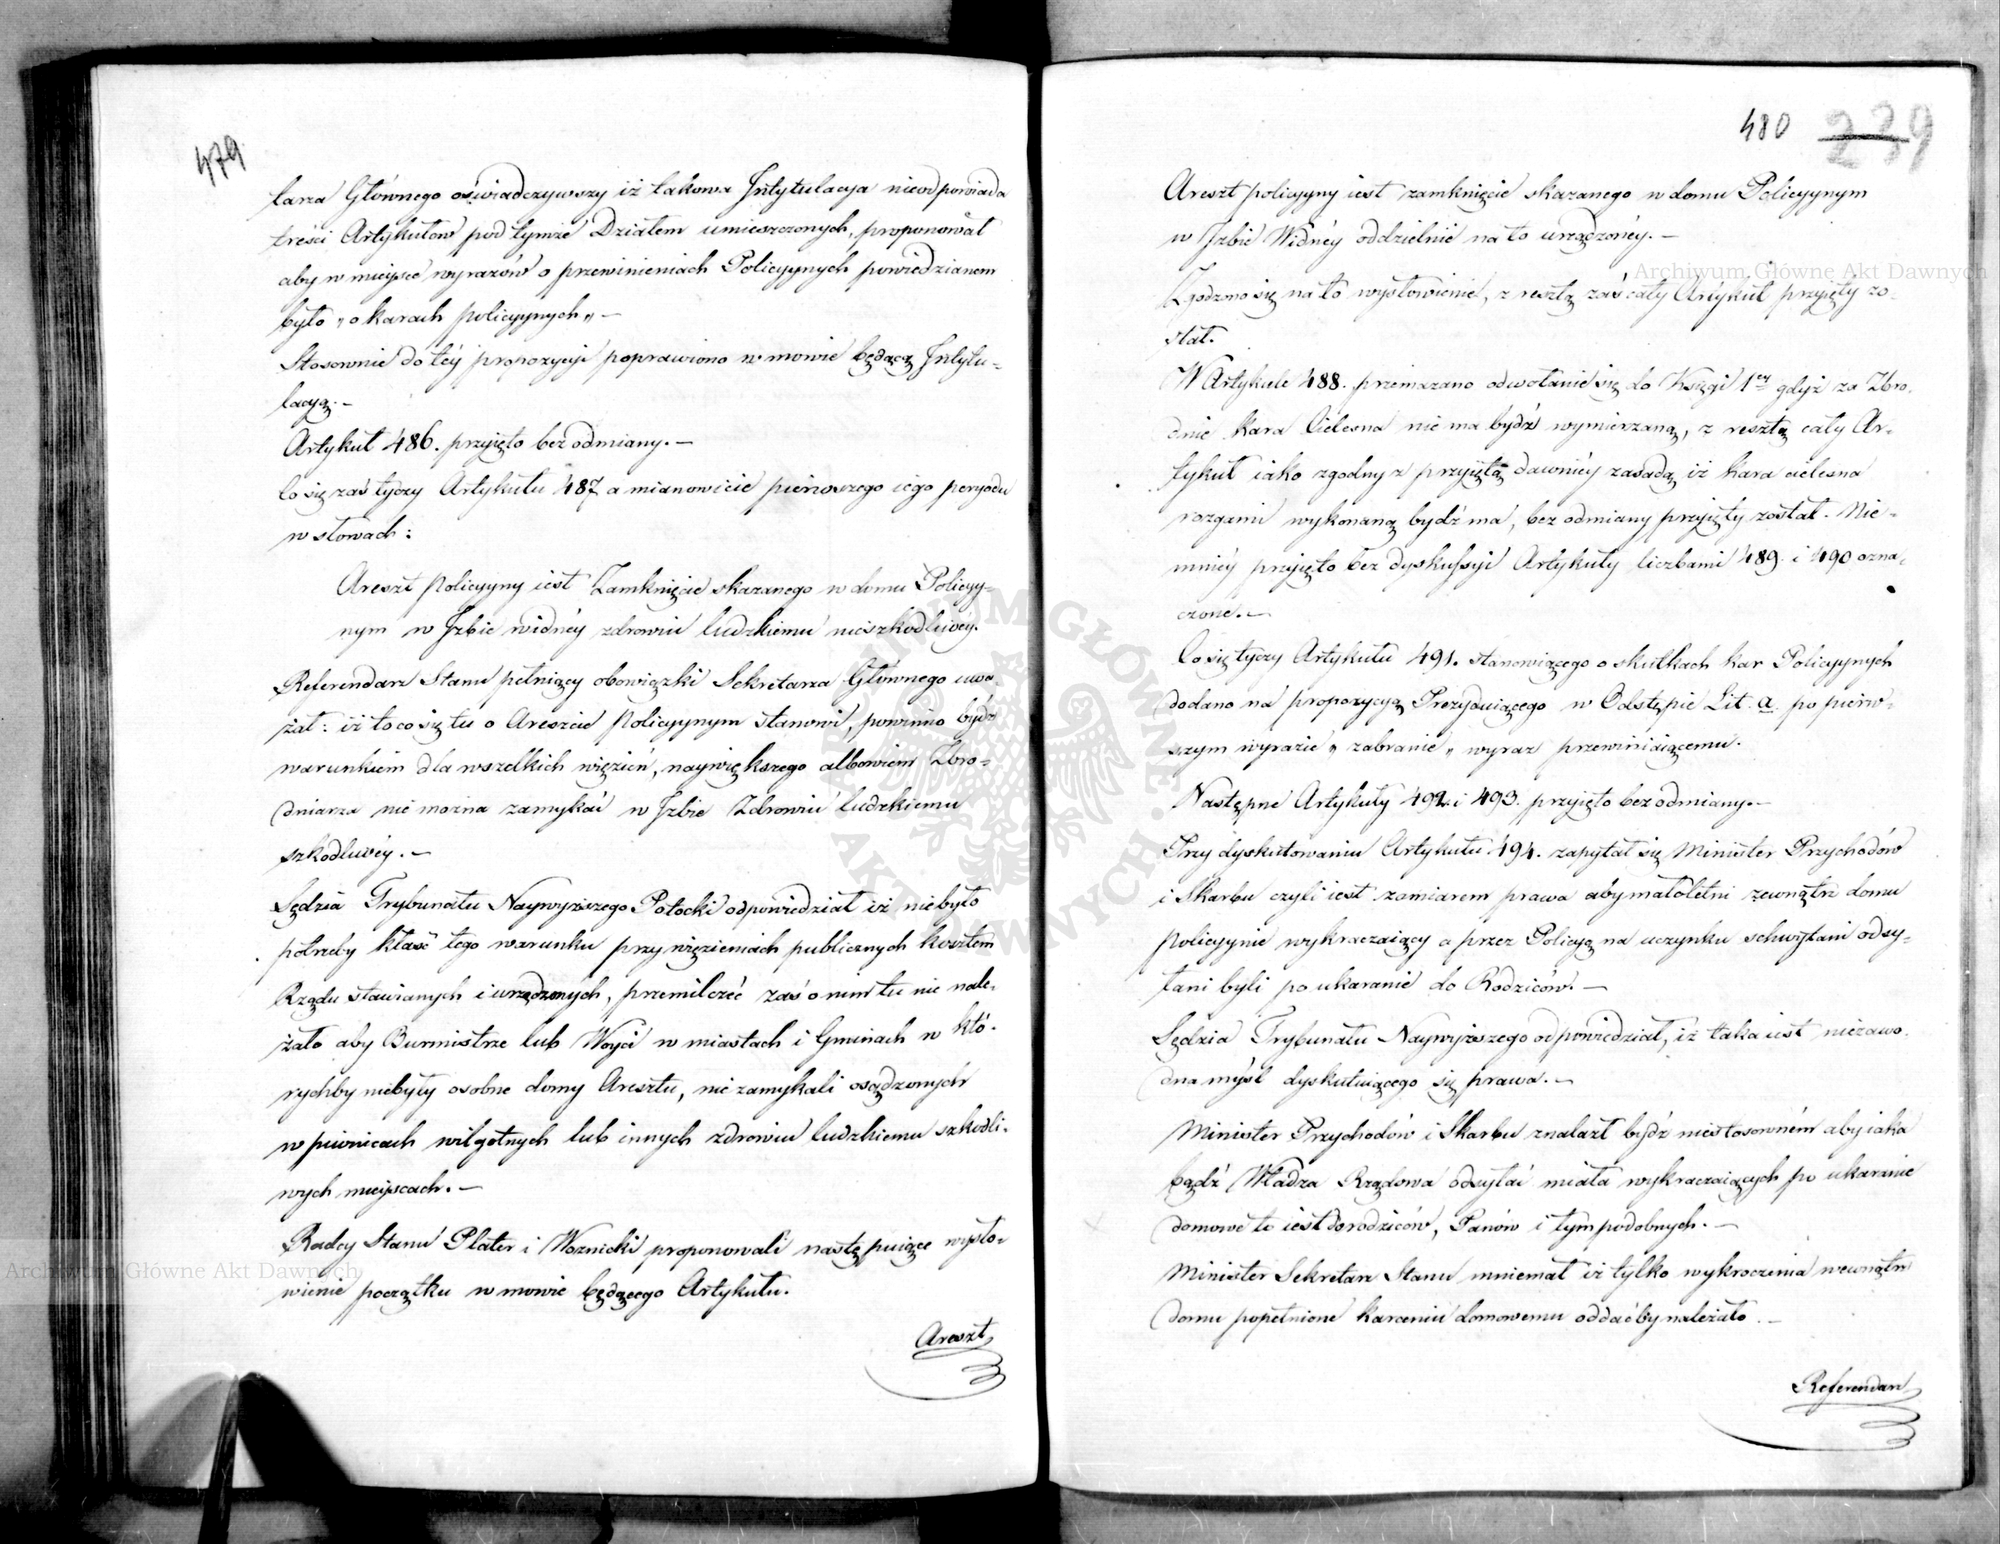 479
tarza Głównego oświadczywszy iż takowa Intytulacya nieodpowiada
treści Artykułów pod tymże Działem umieszczonych, proponował
aby w mieysce wyrazów o przewinieniach Policyynych powiedzianem
było „o karach policyynych„ —
Stosownie do téy propozycyi poprawiono w mowie będącą Intytu-
lacyą. —
Artykuł 486. przyięto bez odmiany. —
Co się zaś tyczy Artykułu 487 a mianowicie pierwszego iego peryodu
w słowach:
Areszt Policyyny iest Zamknięcie skazanego w domu Policyy-
nym w Izbie widnéy zdrowiu ludzkiemu nieszkodliwéy.
Referendarz Stanu pełniący obowiązki Sekretarza Głównego uwa-
żał: iż to co się tu o Areszcie Policyynym stanowi, powinno bydź
warunkiem dla wszelkich więzień, naywiększego albowiem Zbro-
dniarza nie można zamykać w Izbie Zdrowiu ludzkiemu
szkodliwéy. —
Sędzia Trybunału Naywyższego Potocki odpowiedział iż niebyło
potrzeby kłaść tego warunku przy więzieniach publicznych kosztem
Rządu stawianych i urządzonych, przemilczéć zaś o nim tu nie nale-
żało aby Burmistrze lub Woyci w miastach i Gminach w któ-
rychby niebyły osobne domy Aresztu, nie zamykali osądzonych
w piwnicach wilgotnych lub innych zdrowiu ludzkiemu szkodli-
wych mieyscach. —
Radcy Stanu Plater i Woznicki proponowali następuiące wysło-
wienie początku w mowie będącego Artykułu.
Areszt
480 239
Areszt policyyny iest zamknięcie skazanego w domu Policyynym
w Izbie Widnéy oddzielnie na to urządzonéy. —
Archiwum Główne Akt Dawnych
Zgodzono się na to wysłowienie, z resztą zaś cały Artykuł przyięty zo-
stał.
W Artykule 488. przemazano odwołanie się do Księgi 1ey gdyż za Zbro-
dnie kara Cielesna nie ma bydź wymierzaną, z resztą cały Ar-
tykuł iako zgodny z przyiętą dawniéy zasadą iż kara cielesna
rozgami wykonaną bydź ma, bez odmiany przyięty został. Nie-
mniéy przyięto bez dyskussyi Artykuły liczbami 489. i 490 ozna-
czone. —
Co się tyczy Artykułu 491. stanowiącego o skutkach kar Policyynych
dodano na propozycyą Prezyduiącego w Odstępie Lit. a. po pierw-
szym wyrazie „zabranie„ wyraz przewiniaiącemu.
Następne Artykuły 492. i 493. przyięto bez odmiany. —
Przy dyskutowaniu Artykułu 494. zapytał się Minister Przychodów
i Skarbu czyli iest zamiarem prawa aby małoletni zewnątrz domu
policyynie wykraczaiący a przez Policyą na uczynku schwytani odsy-
łani byli po ukaranie do Rodziców. —
Sędzia Trybunału Naywyższego odpowiedział, iż taka iest niezawo-
dna myśl dyskutuiącego się prawa. —
Minister Przychodów i Skarbu znalazł bydź niestosowném aby iaka
bądź Władza Rządowa odsyłać miała wykraczaiących po ukaranie
domowe to iest do rodziców, Panów i tym podobnych. —
Minister Sekretarz Stanu mniemał iż tylko wykroczenia wewnątrz
domu popełnione karceniu domowemu oddać by należało. —
Referendarz
Archiwum Główne Akt Dawnych
ARCHIWUM GŁÓWNE AKT DAWNYCH